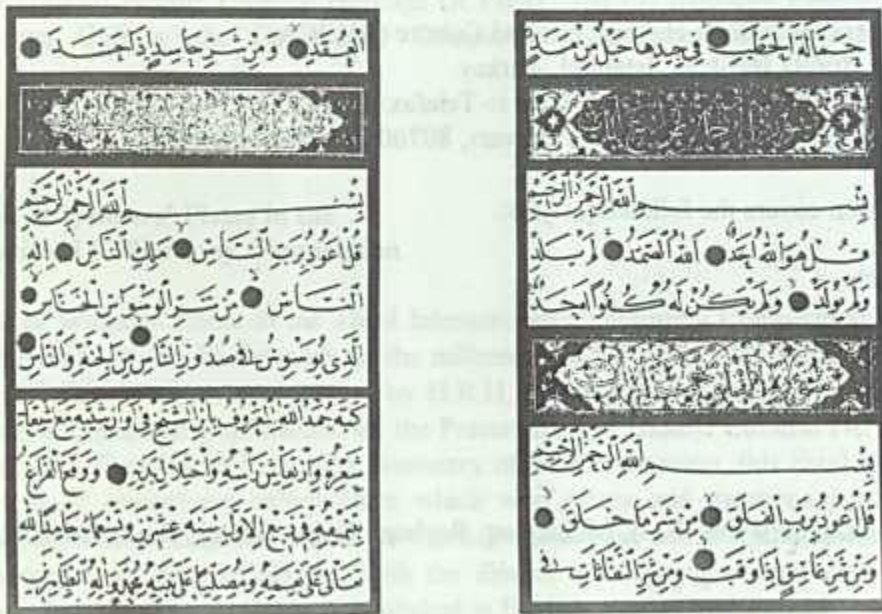 حمالة الحطب في جيدها حبل من مسد
بسم الله الرحمن الرحيم
قل هو الله احد الله الصمد لم يلد
ولم يولد ولم يكن له كفوا احد
بسم الله الرحمن الرحيم
قل اعوذ برب الفلق من شر ما خلق
ومن شر غاسق اذا وقب ومن شر النفاثات في
العقد ومن شر حاسد اذا حسد
بسم الله الرحمن الرحيم
قل اعوذ برب الناس ملك الناس اله
الناس من شر الوسواس الخناس
الذي يوسوس في صدور الناس من الجنة والناس
كتبه حمد الله المعروف بابن الشيخ في اوان شيبه مع
شعره وارتعاش راسه واختلال يديه ووقع الفراغ
بتنميقه في ربيع الاول لسنه عشرين وتسعمائة حامدا لله
تعالى على نعمه ومصليا على نبيه محمد واله الطاهرين